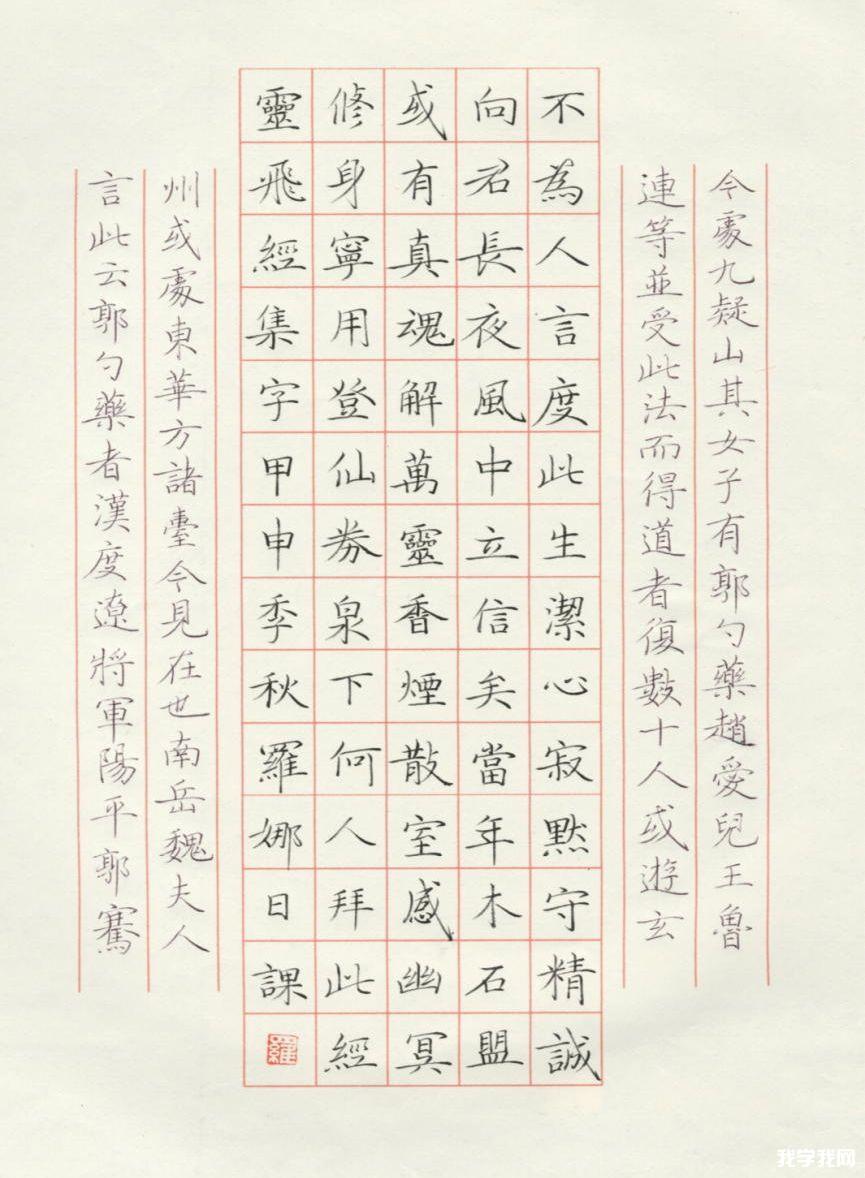 今處九疑山其女子有郭勺藥趙愛兒王魯
連等並受此法而得道者復數十人或遊玄
不為人言度此生潔心寂默守精誠
向君長夜風中立信矣當年木石盟
或有真魂解萬靈香煙散室感幽冥
修身寧用登仙券泉下何人拜此經
靈飛經集字甲申季秋羅娜日課
羅
州或處東華方諸臺今見在也南岳魏夫人
言此云郭勺藥者漢度遼將軍陽平郭騫
我学我网